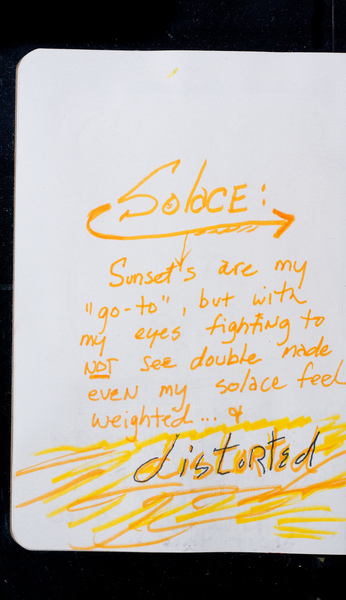 Solace:
Sunset's are my
"go-to", but with
my eyes fighting to
NOT see double made
even my solace feel
weighted... &
distorted